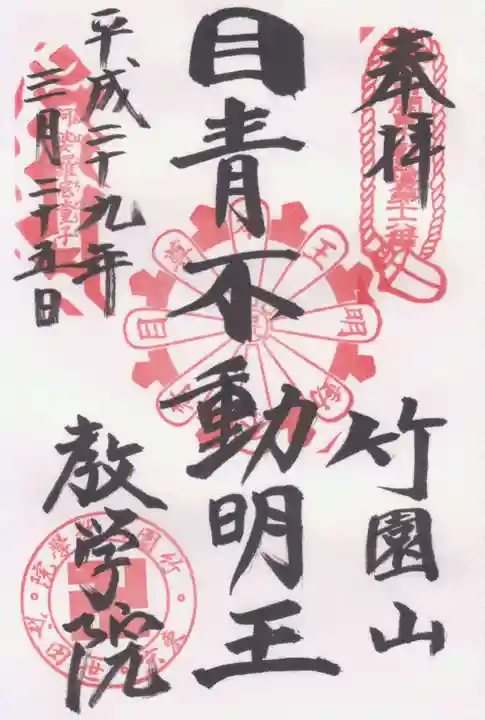 奉拝
竹園山
目青不動明王
平成二十九年
三月二十五日
教学院